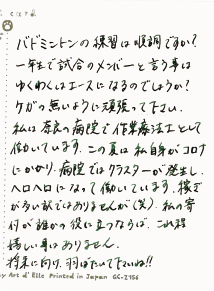 バドミントンの練習は順調ですか?
一年生で試合のメンバーと言う事は
ゆくゆくはエースになるのでしょうか?
ケガの無いように頑張って下さい。
私は奈良の病院で作業療法士として
働いています。この夏は私自身がコロナ
にかかり、病院ではクラスターが発生し、
ヘロヘロになって働いています。稼ぎ
が多い訳ではありませんが(笑)、私の寄
付が誰かの役に立つならば、これ程
嬉しい事はありません。
将来に向け、羽ばたいて下さいね!!
by Art d' Elle Printed in Japan GC-2156